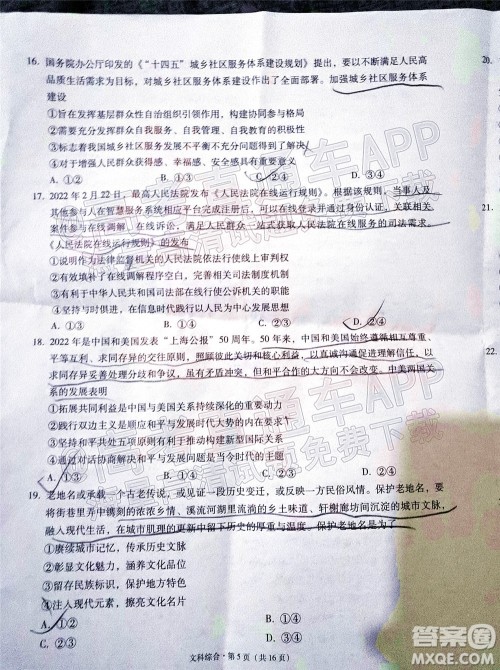 16. 国务院办公厅印发的《“十四五”城乡社区服务体系建设规划》提出，要以不断满足人民高
品质生活需求为目标，对城乡社区服务体系建设作出了全面部署。加强城乡社区服务体系
建设
①旨在发挥基层群众性自治组织引领作用，构建协同参与格局
②需要充分发挥群众自我服务、自我管理、自我教育的积极性
③标志着我国城乡社区服务发展不平衡不充分问题得到了解决
④对于增强人民群众获得感、幸福感、安全感具有重要意义
A. ①②
B. ①③
C. ②④
D. ③④
17. 2022年2月22日，最高人民法院发布《人民法院在线运行规则》。根据该规则，当事人及
其他参与人在智慧服务系统相应平台完成注册后，可以在线登录、通过身份认证，关联相关
案件参与在线调解、在线诉讼，满足人民群众一站式获取人民法院在线服务的司法需求。
《人民法院在线运行规则》的发布
①说明作为法律监督机关的人民法院依法行使线上审判权
②有效规范了在线调解程序空白，完善了相关司法制度机制
③有利于中华人民共和国司法部在线行使公诉机关的职能
④坚持与时俱进，在信息时代践行以人民为中心的发展思想
A. ①③
B. ①④
C. ②③
D. ②④
18. 2022年是中国和美国发表“上海公报”50周年。50年来，中国和美国始终遵循相互尊重、
平等互利、求同存异的交往原则，照顾彼此关切和核心利益，以真诚沟通促进理解信任，以
求同存异妥善处理分歧和争议，虽有矛盾冲突，但和平合作的大方向不会改变。中美两国关
系的发展表明
①拓展共同利益是中国与美国关系持续深化的重要动力
②践行双边主义为和平与发展时代主题作出了大国贡献
③坚持和平共处五项原则有利于构建新型国际关系
④通过对话协商解决和平与发展问题是当今时代的主题
A. ①③
B. ①④
C. ②③
D. ②④
19. 老地名或承载一个古老传说，或见证一段历史变迁，或展示一方民俗风情。保护老地名，要
将街巷里弄中镌刻的浓浓乡情、溪流河湖里流淌的乡土味道、轩榭廊坊间沉淀的城市文脉，
融入现代生活，在城市肌理的更新中留下历史的厚重与温度。保护老地名是为了
①赓续城市记忆，传承历史文脉
②彰显文化魅力，涵养文化品格
③留存民族标识，保护地方特色
④注入现代元素，擦亮文化名片
A. ①②
B. ①④
C. ②③
D. ③④
文科综合·第5页（共16页）
20.
2
答案圈
MXQE.COM